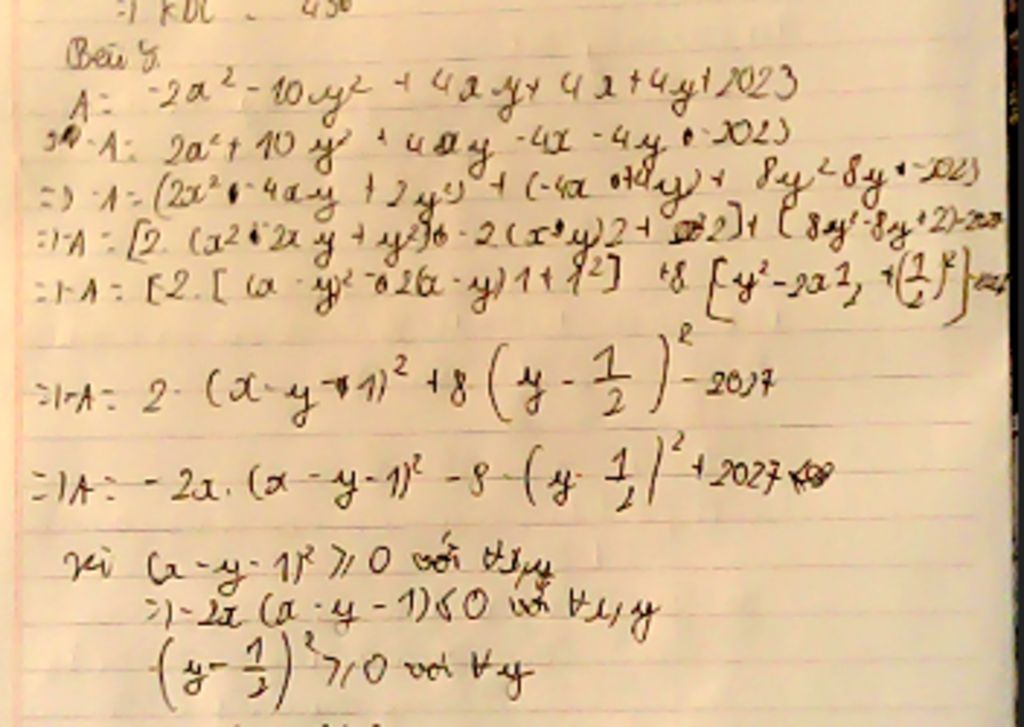 A = -2x² - 10y² + 4xy + 4x + 4y + 2023
-A = 2x² + 10y² + 4xy - 4x - 4y - 2023
=> -A = (2x² - 4xy + 2y²) + (-4x + 4y) + 8y² - 8y - 2023
=> -A = [2. (x² - 2xy + y²) - 2(x - y)2 + 2] + [8y² - 8y + 2] - 2027
=> -A = [2. [(x - y)² - 2(x - y)1 + 1²] + 8 [y² - 2x 1/2 + (1/2)²] - 2027
=> -A = 2. (x - y - 1)² + 8 (y - 1/2)² - 2027
=> A = - 2x. (x - y - 1)² - 8 (y - 1/2)² + 2027
Vì (x - y - 1)² ≥ 0 với ∀x,y
=> - 2x (x - y - 1) ≤ 0 với ∀x,y
(y - 1/2)² ≥ 0 với ∀y